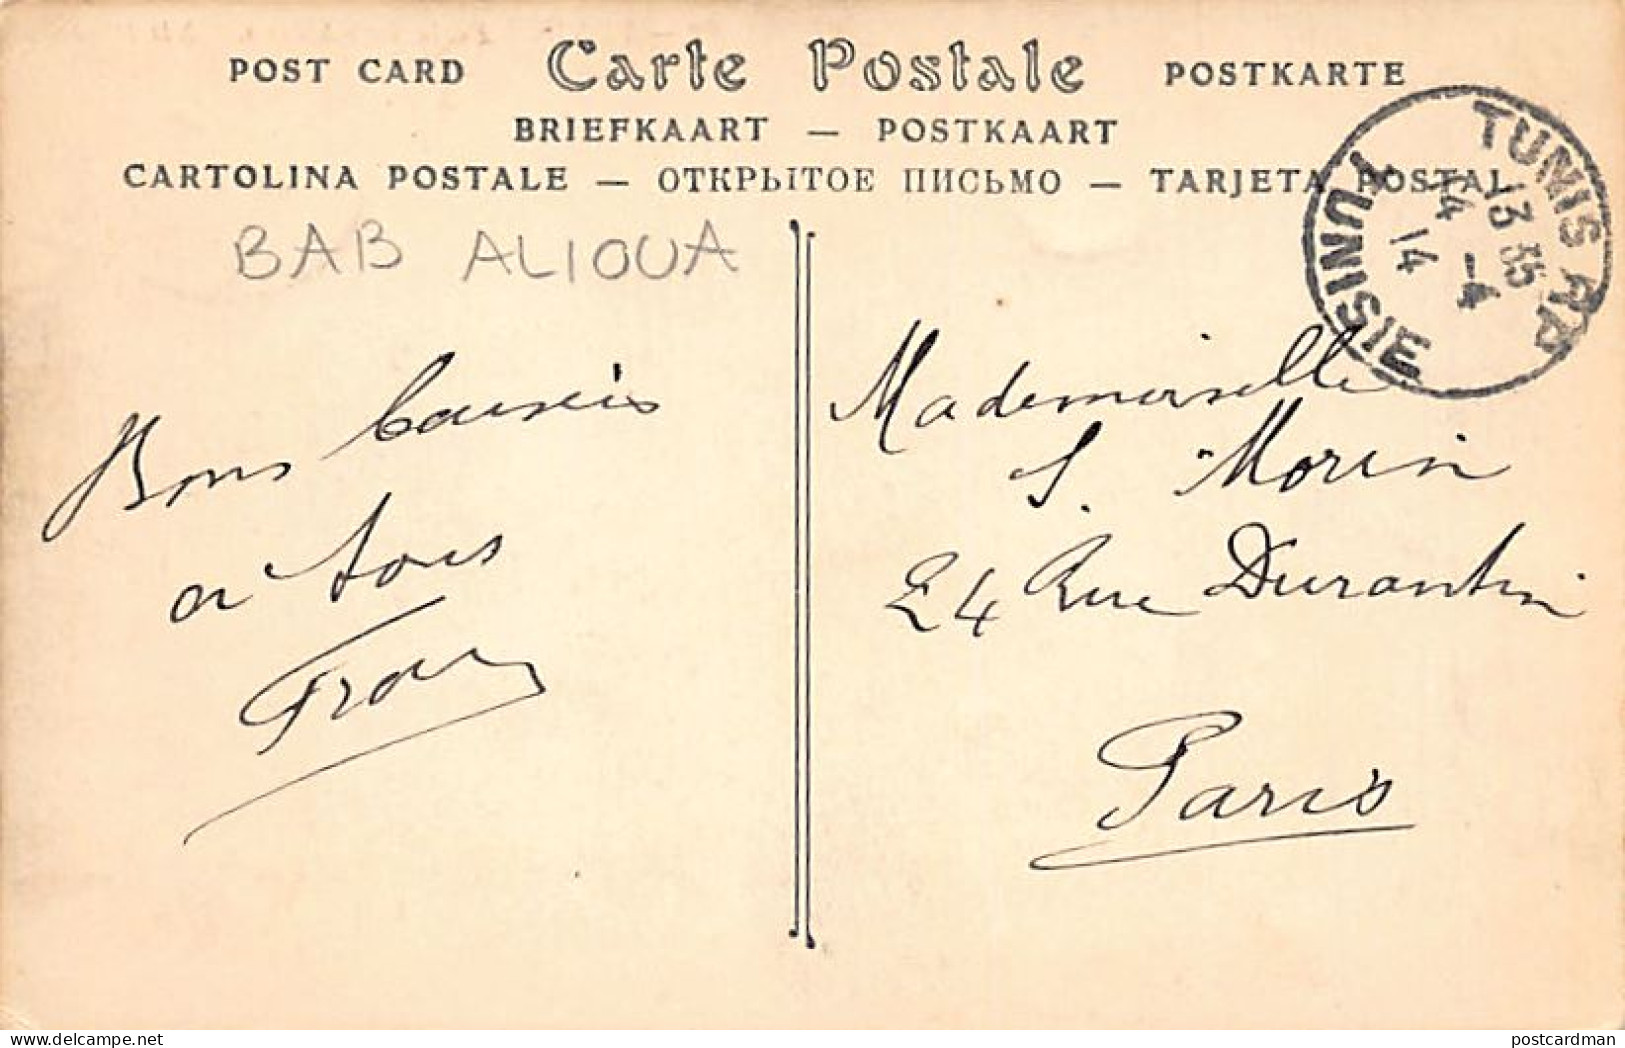 POST CARD Carte Postale POSTKARTE
BRIEFKAART — POSTKAART
CARTOLINA POSTALE — ОТКРЫТОЕ ПИСЬМО — TARJETA POSTAL
TUNIS RP
13 35
14 -4
14
TUNISIE
BAB ALIOUA
Bons baisers
a tous
Mademoiselle
S. Morin
24 Rue Durantin
Paris
postcardman